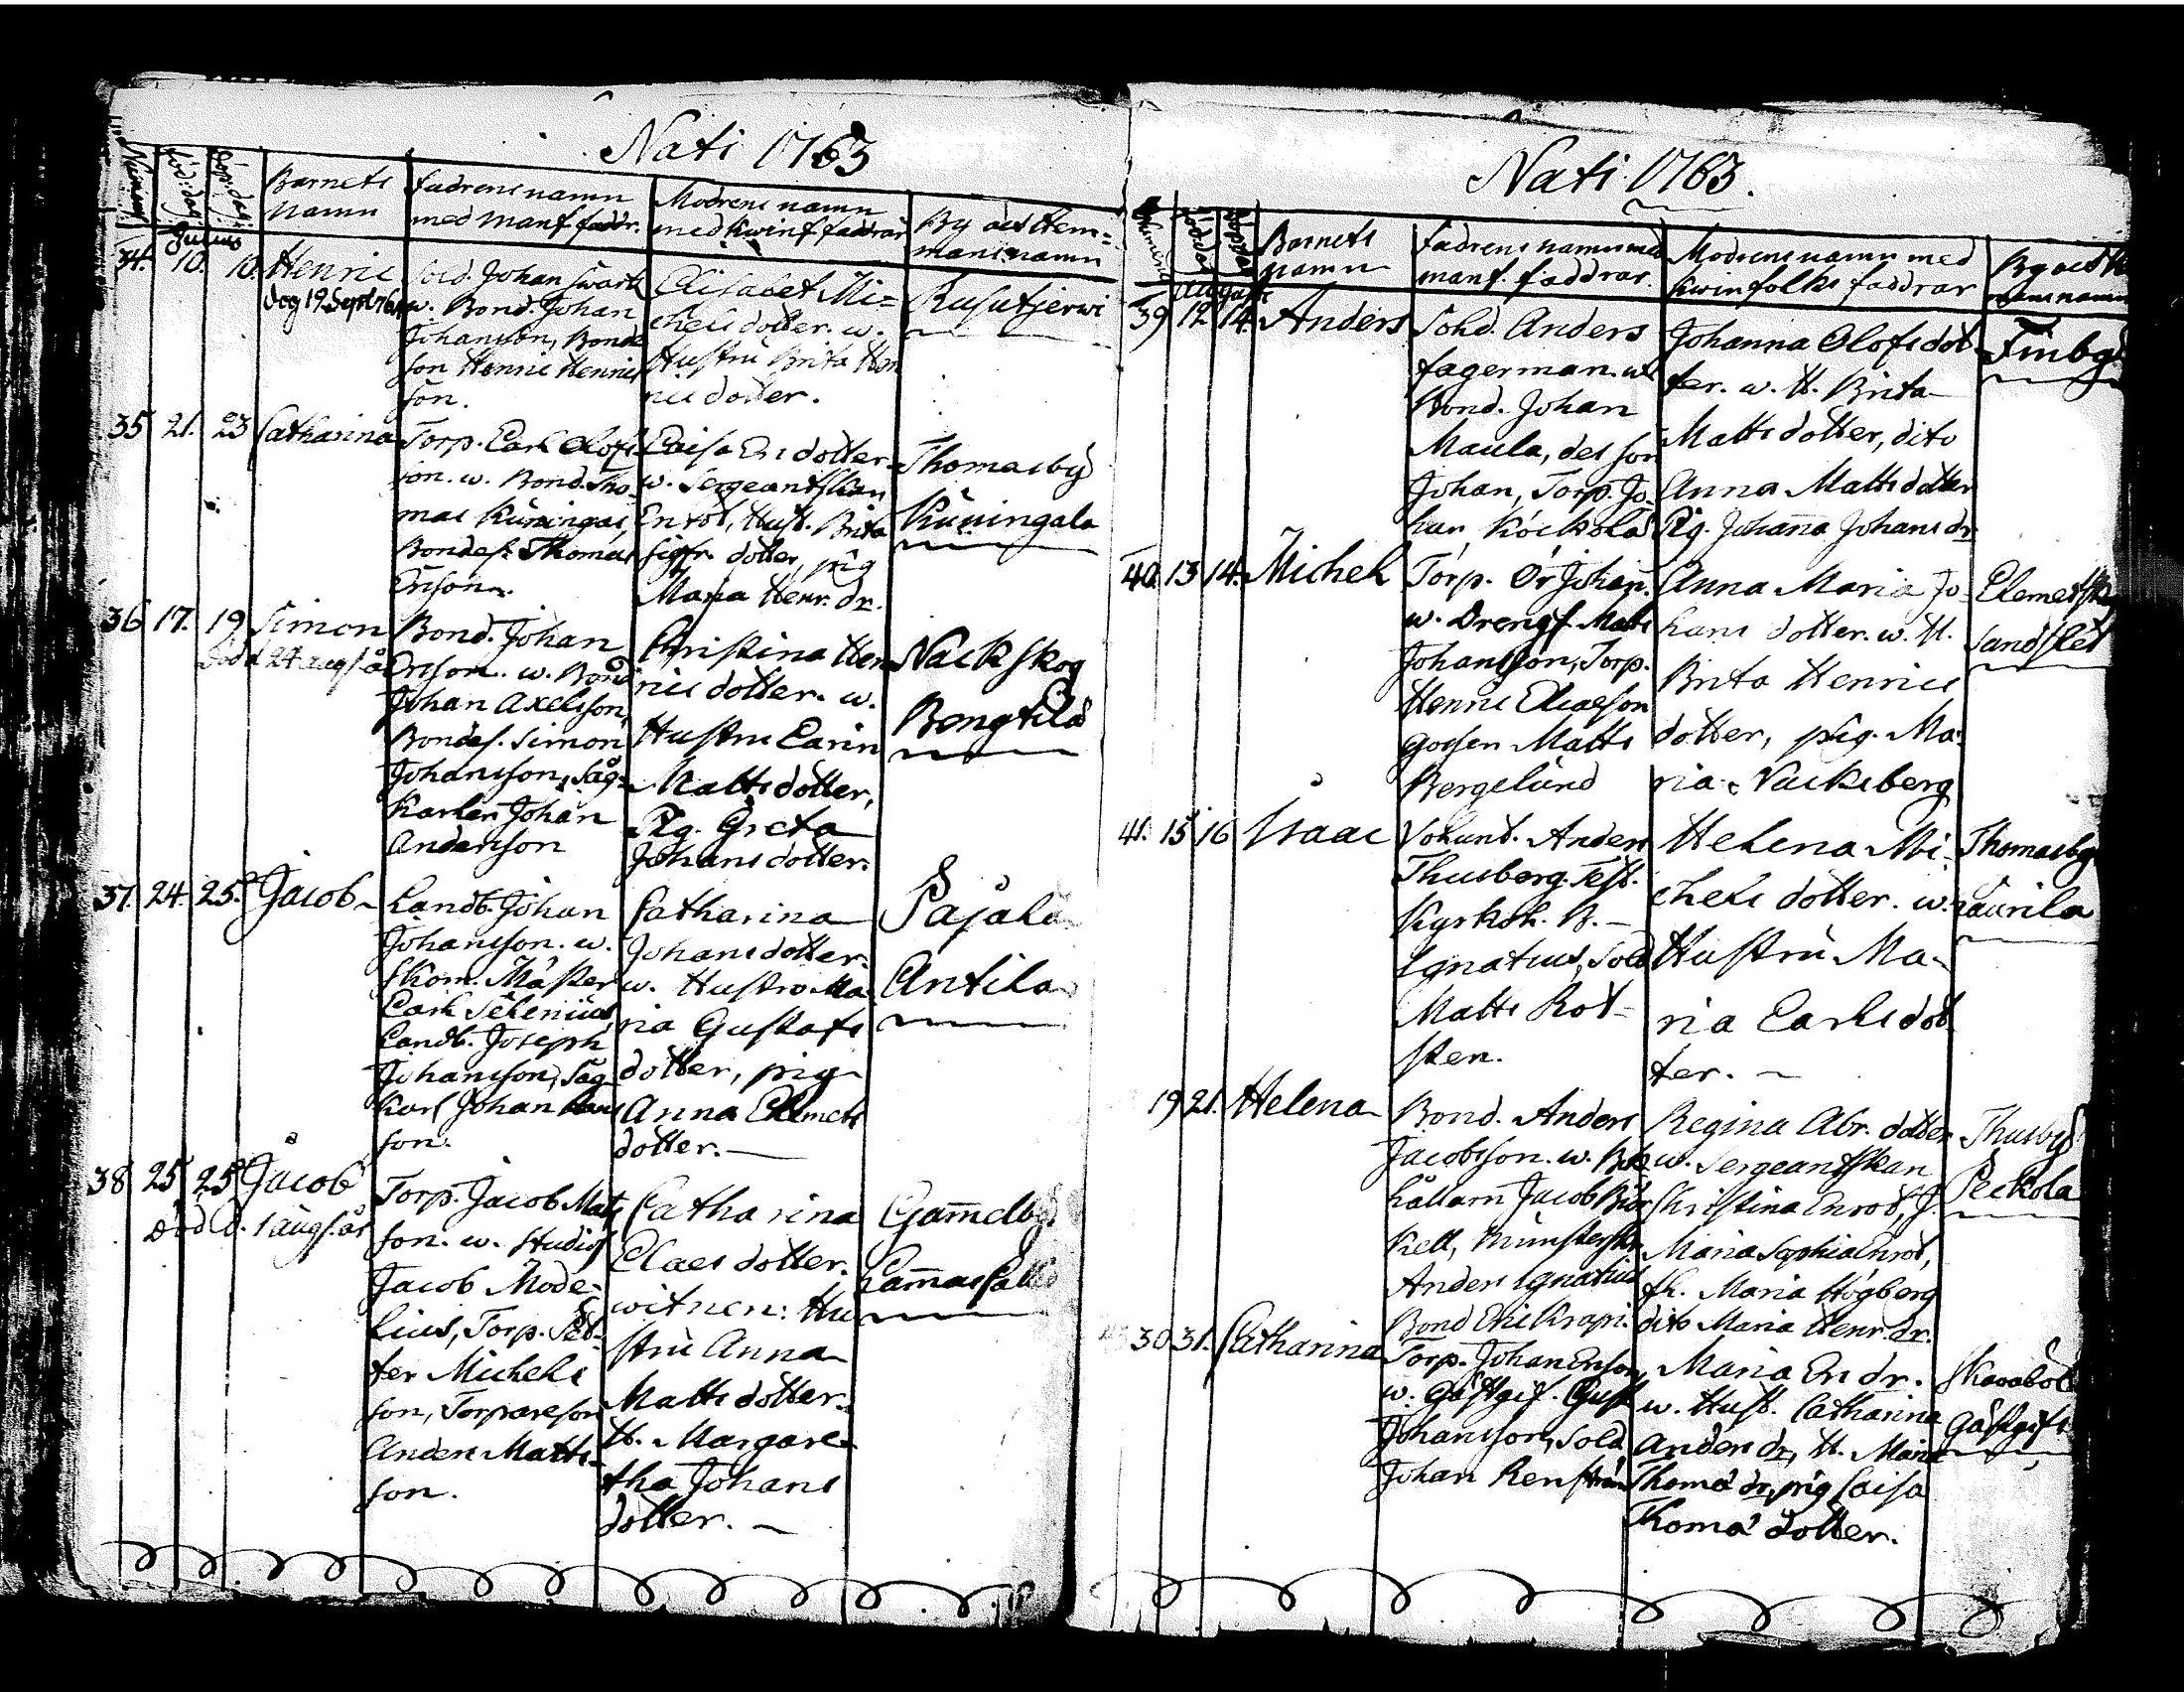 Nati 1763
Numero
föd: dag
döp: dag
Barnets
namn
fadrens namn
med manf faddr.
Modrens namn
med kwinf faddrar
By och Hem=
mans namn
Julius
34. 10. 10. Henric
dog 19 Sept.
Sold. Johan Swart
w. Bond. Johan
Johansson, Bonde
son Henric Henrics
son.
Elisabet Mi=
chels dotter. w.
Hustru Brita Hen
rics dotter.
Rusutjerwi
35 21. 23 Catharina
Torp. Carl Olofs
son. w. Bond. Tho
mas Kuningas,
Bondes. Thomas
Ersson.
Caisa Ers dotter
w. Sergeantskan
Enrot, Hust. Brita
Sigfr. dotter, pig
Maria Henr. dr.
Thomasby
Kuningala
36 17. 19 Simon
död d 24 aug s å
Bond. Johan
Ersson. w. Bond
Johan Axelsson,
Bondes. Simon
Johansson, Såg-
Karlen Johan
Andersson
Christina Hen
rics dotter. w.
Hustru Carin
Matts dotter,
Pig. Greta
Johans dotter.
Nackskog
Bengtila
37. 24. 25. Jacob
Landb. Johan
Johansson. w.
Skom. Mäster
Carl Selenius,
Landb. Joseph
Johansson, Såg
Karl Johan Hans
son.
Catharina
Johans dotter.
w. Hustru Ma
ria Gustafs
dotter, pig
Anna Clemets
dotter.
Pajala
Antila
38 25 25 Jacob
död d. 1 aug s. år
Torp. Jacob Mats
son. w. Studios
Jacob Mode-
lius, Torp. Pet-
ter Michels
son, Torpareson
Anders Matts-
son.
Catharina
Claes dotter.
witnen: Hu
stru Anna
Matts dotter.
H. Margare-
tha Johans
dotter.
Gam̄elby
Nati 1763.
Numero
föd dag
döp dag
Barnets
namn
fadrens namn med
manf. faddrar.
Modrens namn med
kwinfolks faddrar
By och H
mans namn
Augusti
39 12 14. Anders
Sold. Anders
fagerman. w.
Bond. Johan
Maula, des son
Johan, Torp. Jo-
han Köckola
Johanna Olofs dot
ter. w. H. Brita
Matts dotter, dito
Anna Matts dotter
Pig. Johan̄a Johans dr
Finby
40 13 14. Michel
Torp. Er Johan.
w. Drengf. Mats
Johansson, Torp.
Henric Eliaeson
gossen Matts
Bergelund
Anna Maria Jo
hans dotter. w. H.
Brita Henrics
dotter, pig. Ma
ria Nackeberg
Sandslet
41. 15 16 Isaac
Volunt. Anders
Thusberg. Test.
Kyrkoh. B.
Ignatius, Sold
Matts Rot-
sten.
Helena Mi-
chels dotter. w.
Hustru Ma-
ria Carls dot
ter.
Thomasby
Laurila
19 21. Helena
Bond. Anders
Jacobsson. w. Bok
hållarn Jacob Biör
kell, Münsterskr.
Anders Ignatius
Bond Eric Krapi.
Regina Abr. dotter
w. Sergeantskan
Christina Enrot, J.
Maria Sophia Enrot,
fh. Maria Högberg
dito Maria Henr. dr.
Thusby
Peckola
30 31. Catharina
Torp. Johan Ersson
w. Gästgif. Gust
Johansson, Sold
Johan Renström
Maria Ers dr.
w. Hust. Catharina
Anders dr, H. Maria
Thoma dr, pig Caisa
Thoma dotter.
Skavaböle
Gästgifs